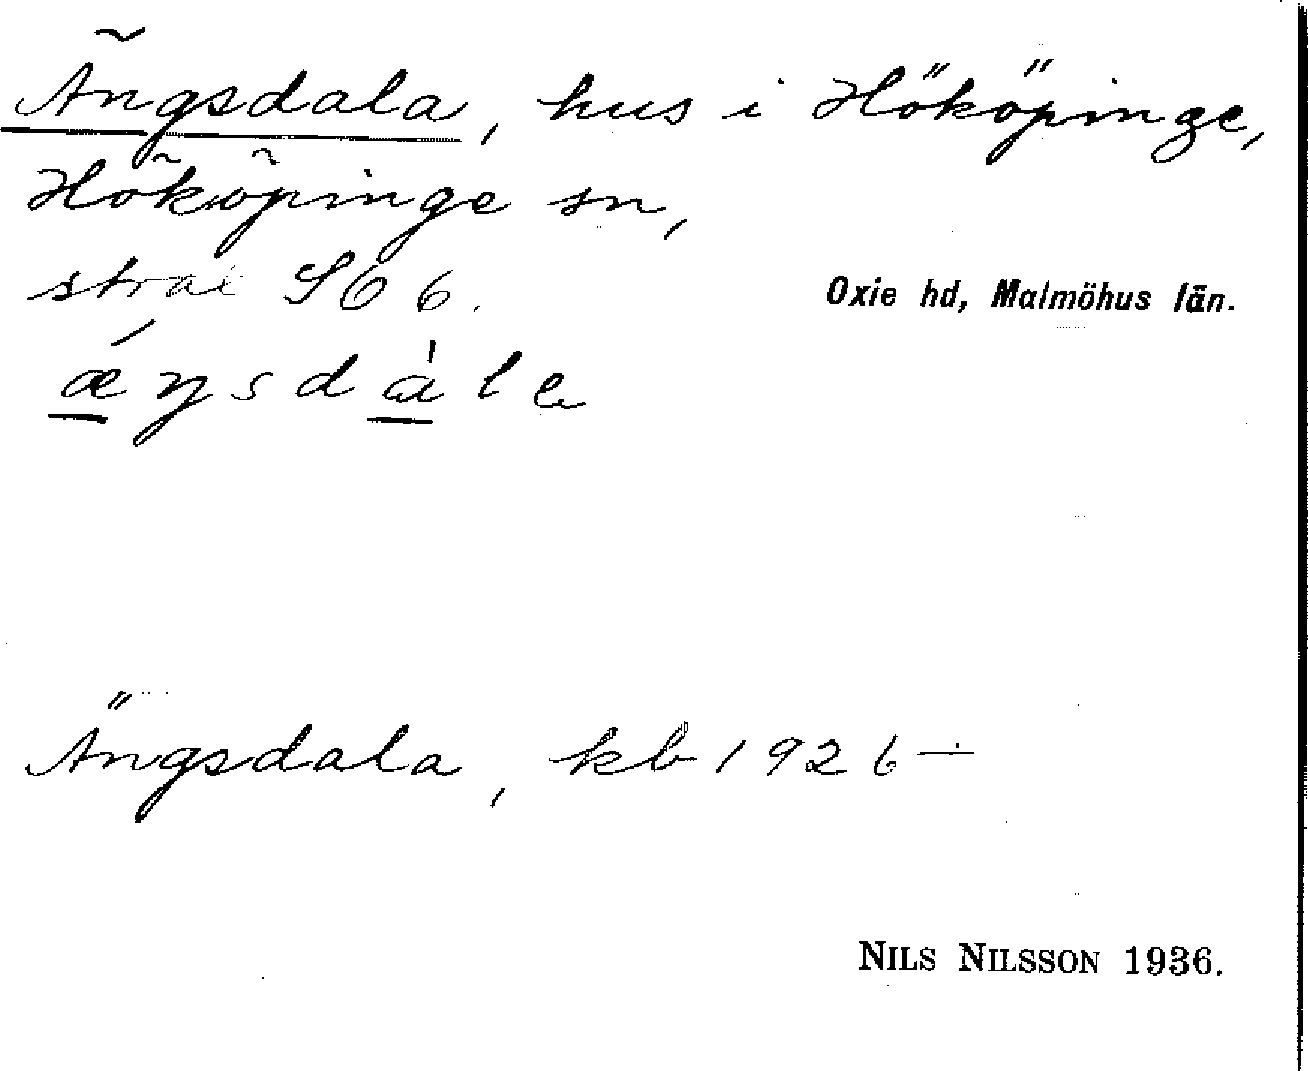 Ängsdala, hus i Hököpinge,
Hököpinge sn,
strax SO 6.
Oxie hd, Malmöhus län.
æŋsdàla
Ängsdala, kb 1926 —
NILS NILSSON 1936.